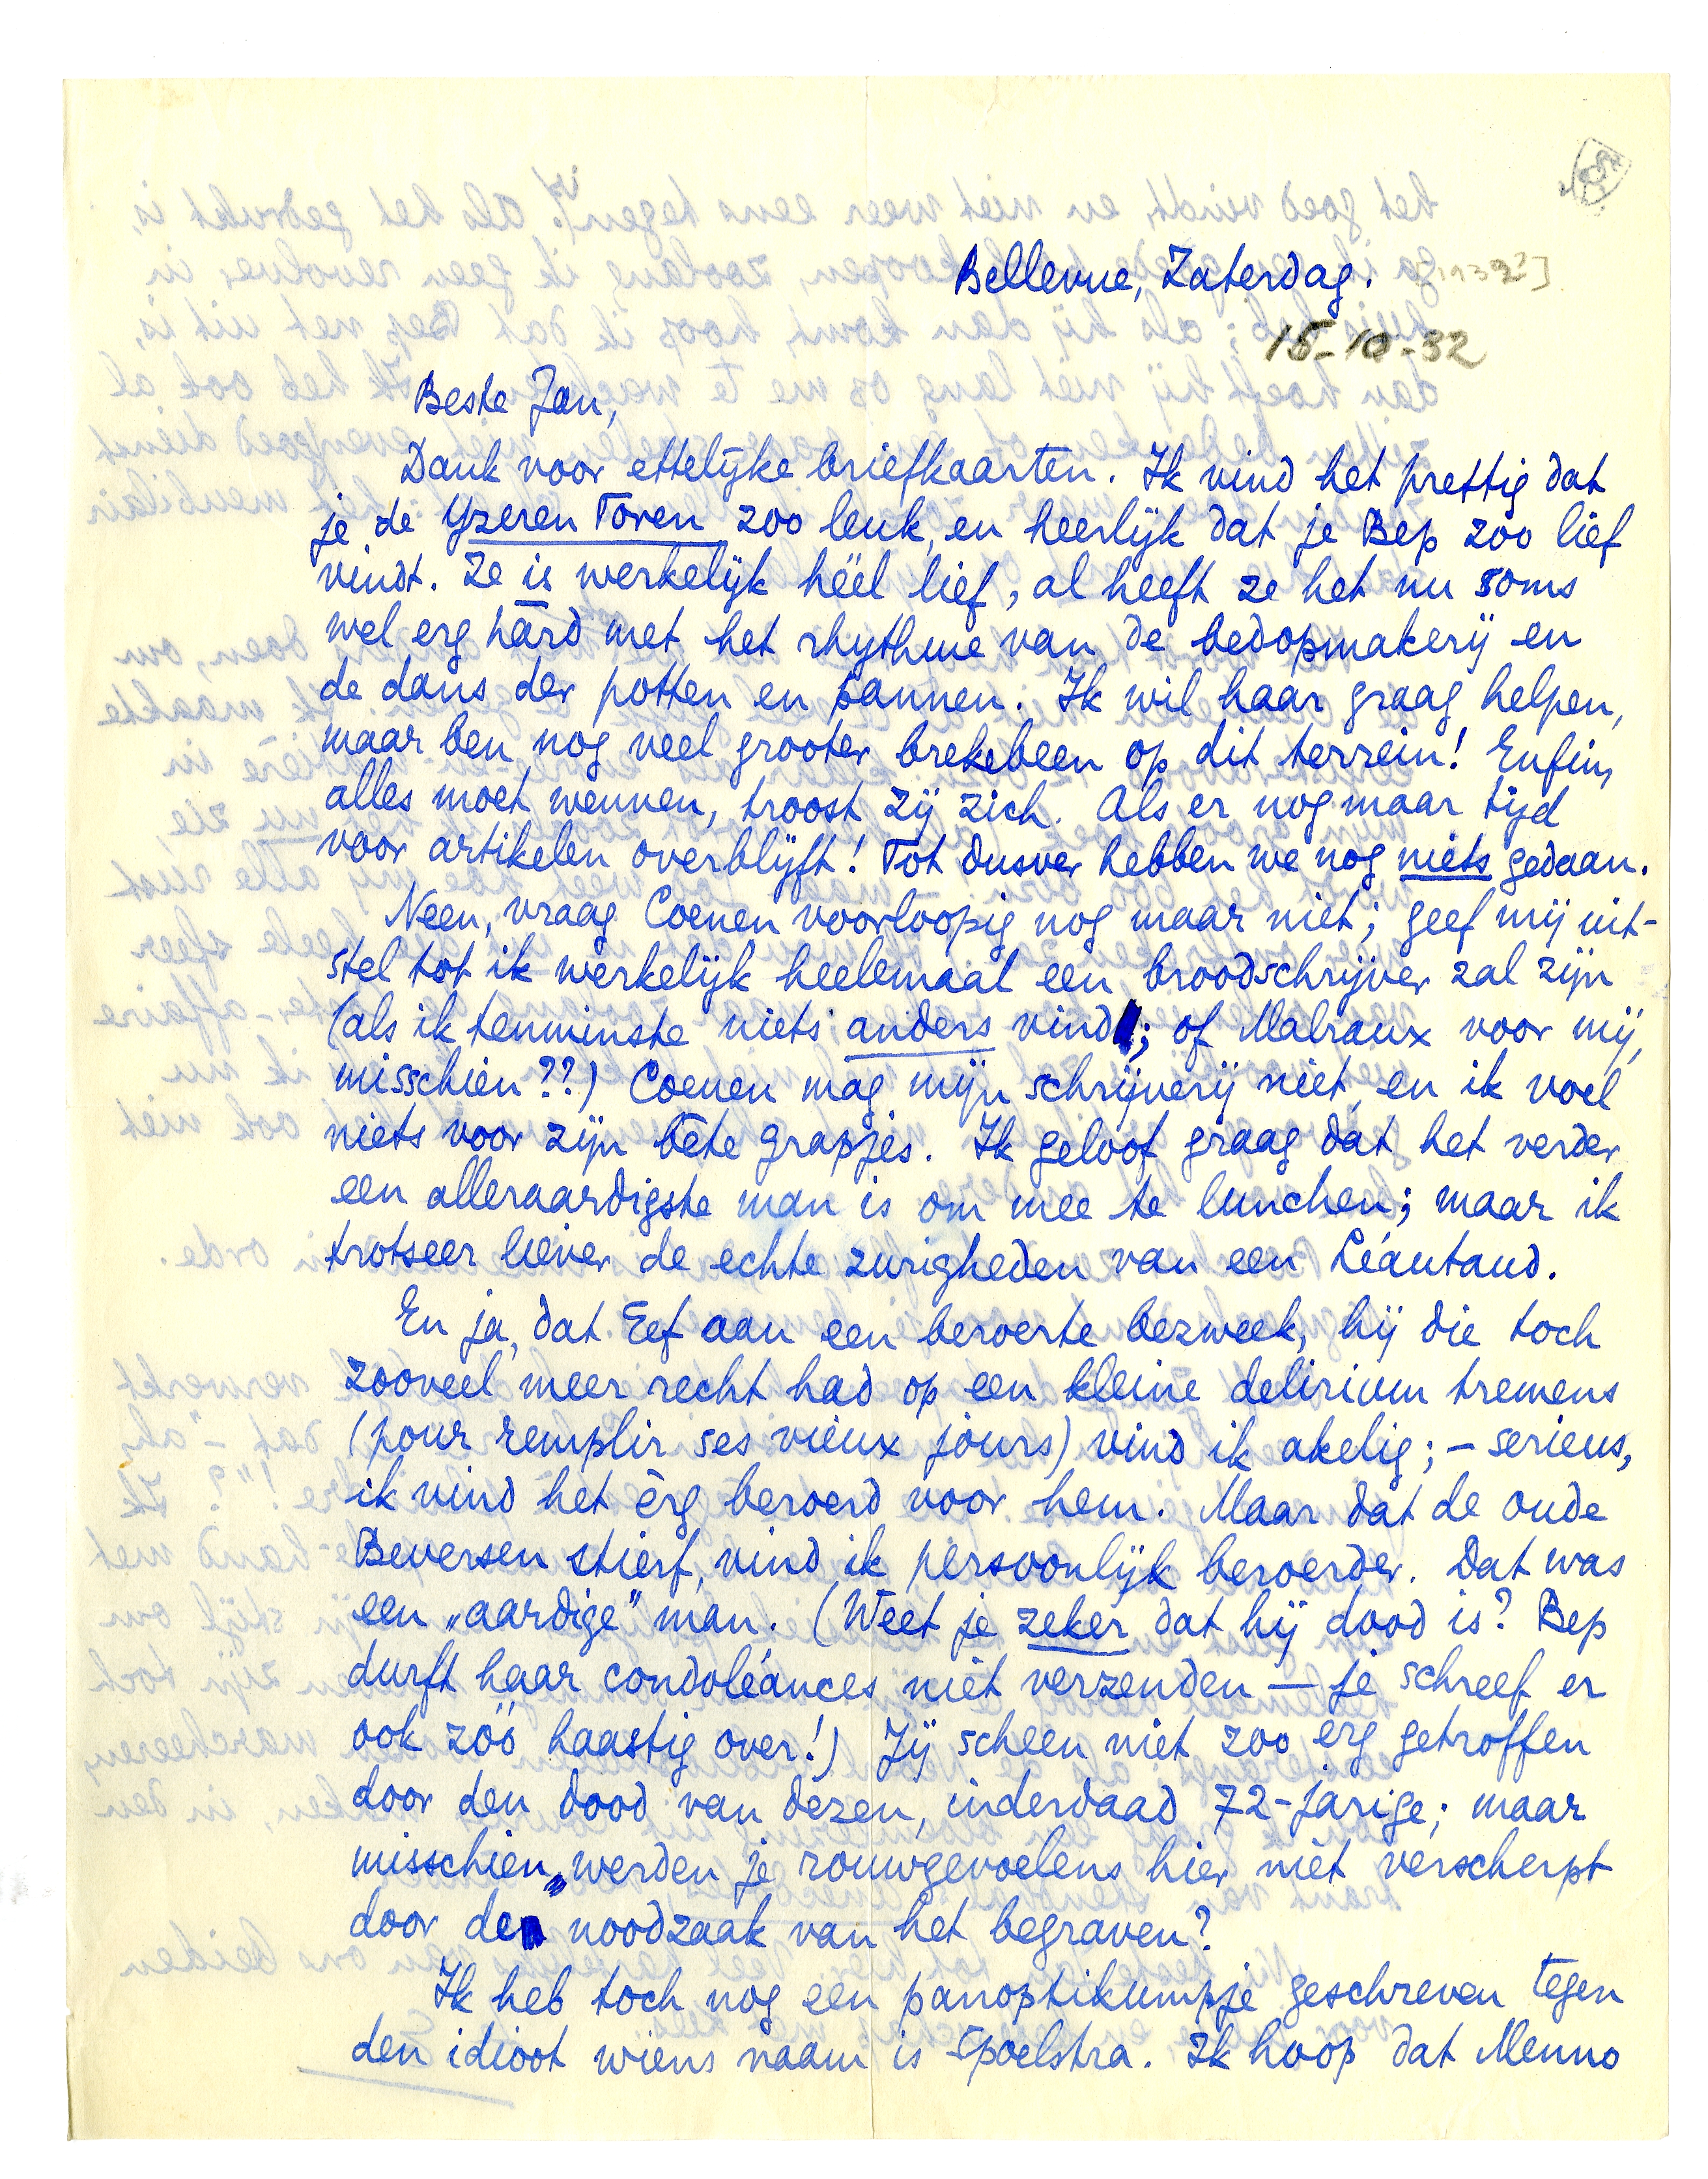 Bellevue, Zaterdag.
15-10-32
Beste Jan,
Dank voor ettelijke briefkaarten. Ik vind het prettig dat
je de Yzeren Toren zoo leuk, en heerlijk dat je Bep zoo lief
vindt. Ze is werkelijk héél lief, al heeft ze het nu soms
wel erg hard met het rhythme van de bedopmakerij en
de dans der potten en pannen. Ik wil haar graag helpen,
maar ben nog veel grooter brekebeen op dit terrein! Enfin,
alles moet wennen, troost zij zich. Als er nog maar tijd
voor artikelen overblijft! Tot dusver hebben we nog niets gedaan.
Neen, vraag Coenen voorloopig nog maar niet; geef mij uit-
stel tot ik werkelijk heelemaal een broodschrijver zal zijn
(als ik tenminste niets anders vind; of Malraux voor mij,
misschien??) Coenen mag mijn schrijverij niet, en ik voel
niets voor zijn bête grapjes. Ik geloof graag dat het verder
een alleraardigste man is om mee te lunchen; maar ik
trotseer liever de echte zurigheden van een Léautaud.
En ja, dat Eef aan een beroerte bezweek, hij die toch
zooveel meer recht had op een kleine delirium tremens
(pour remplir ses vieux jours) vind ik akelig; – serieus,
ik vind het èrg beroerd voor hem. Maar dat de oude
Beversen stierf, vind ik persoonlijk beroerder. Dat was
een „aardige” man. (Weet je zeker dat hij dood is? Bep
durft haar condoléances niet verzenden – je schreef er
ook zóó haastig over!) Jij scheen niet zoo erg getroffen
door den dood van dezen, inderdaad 72-jarige; maar
misschien werden je rouwgevoelens hier niet verscherpt
door de noodzaak van het begraven?
Ik heb toch nog een panoptikumpje geschreven tegen
den idioot wiens naam is Spoelstra. Ik hoop dat Menno